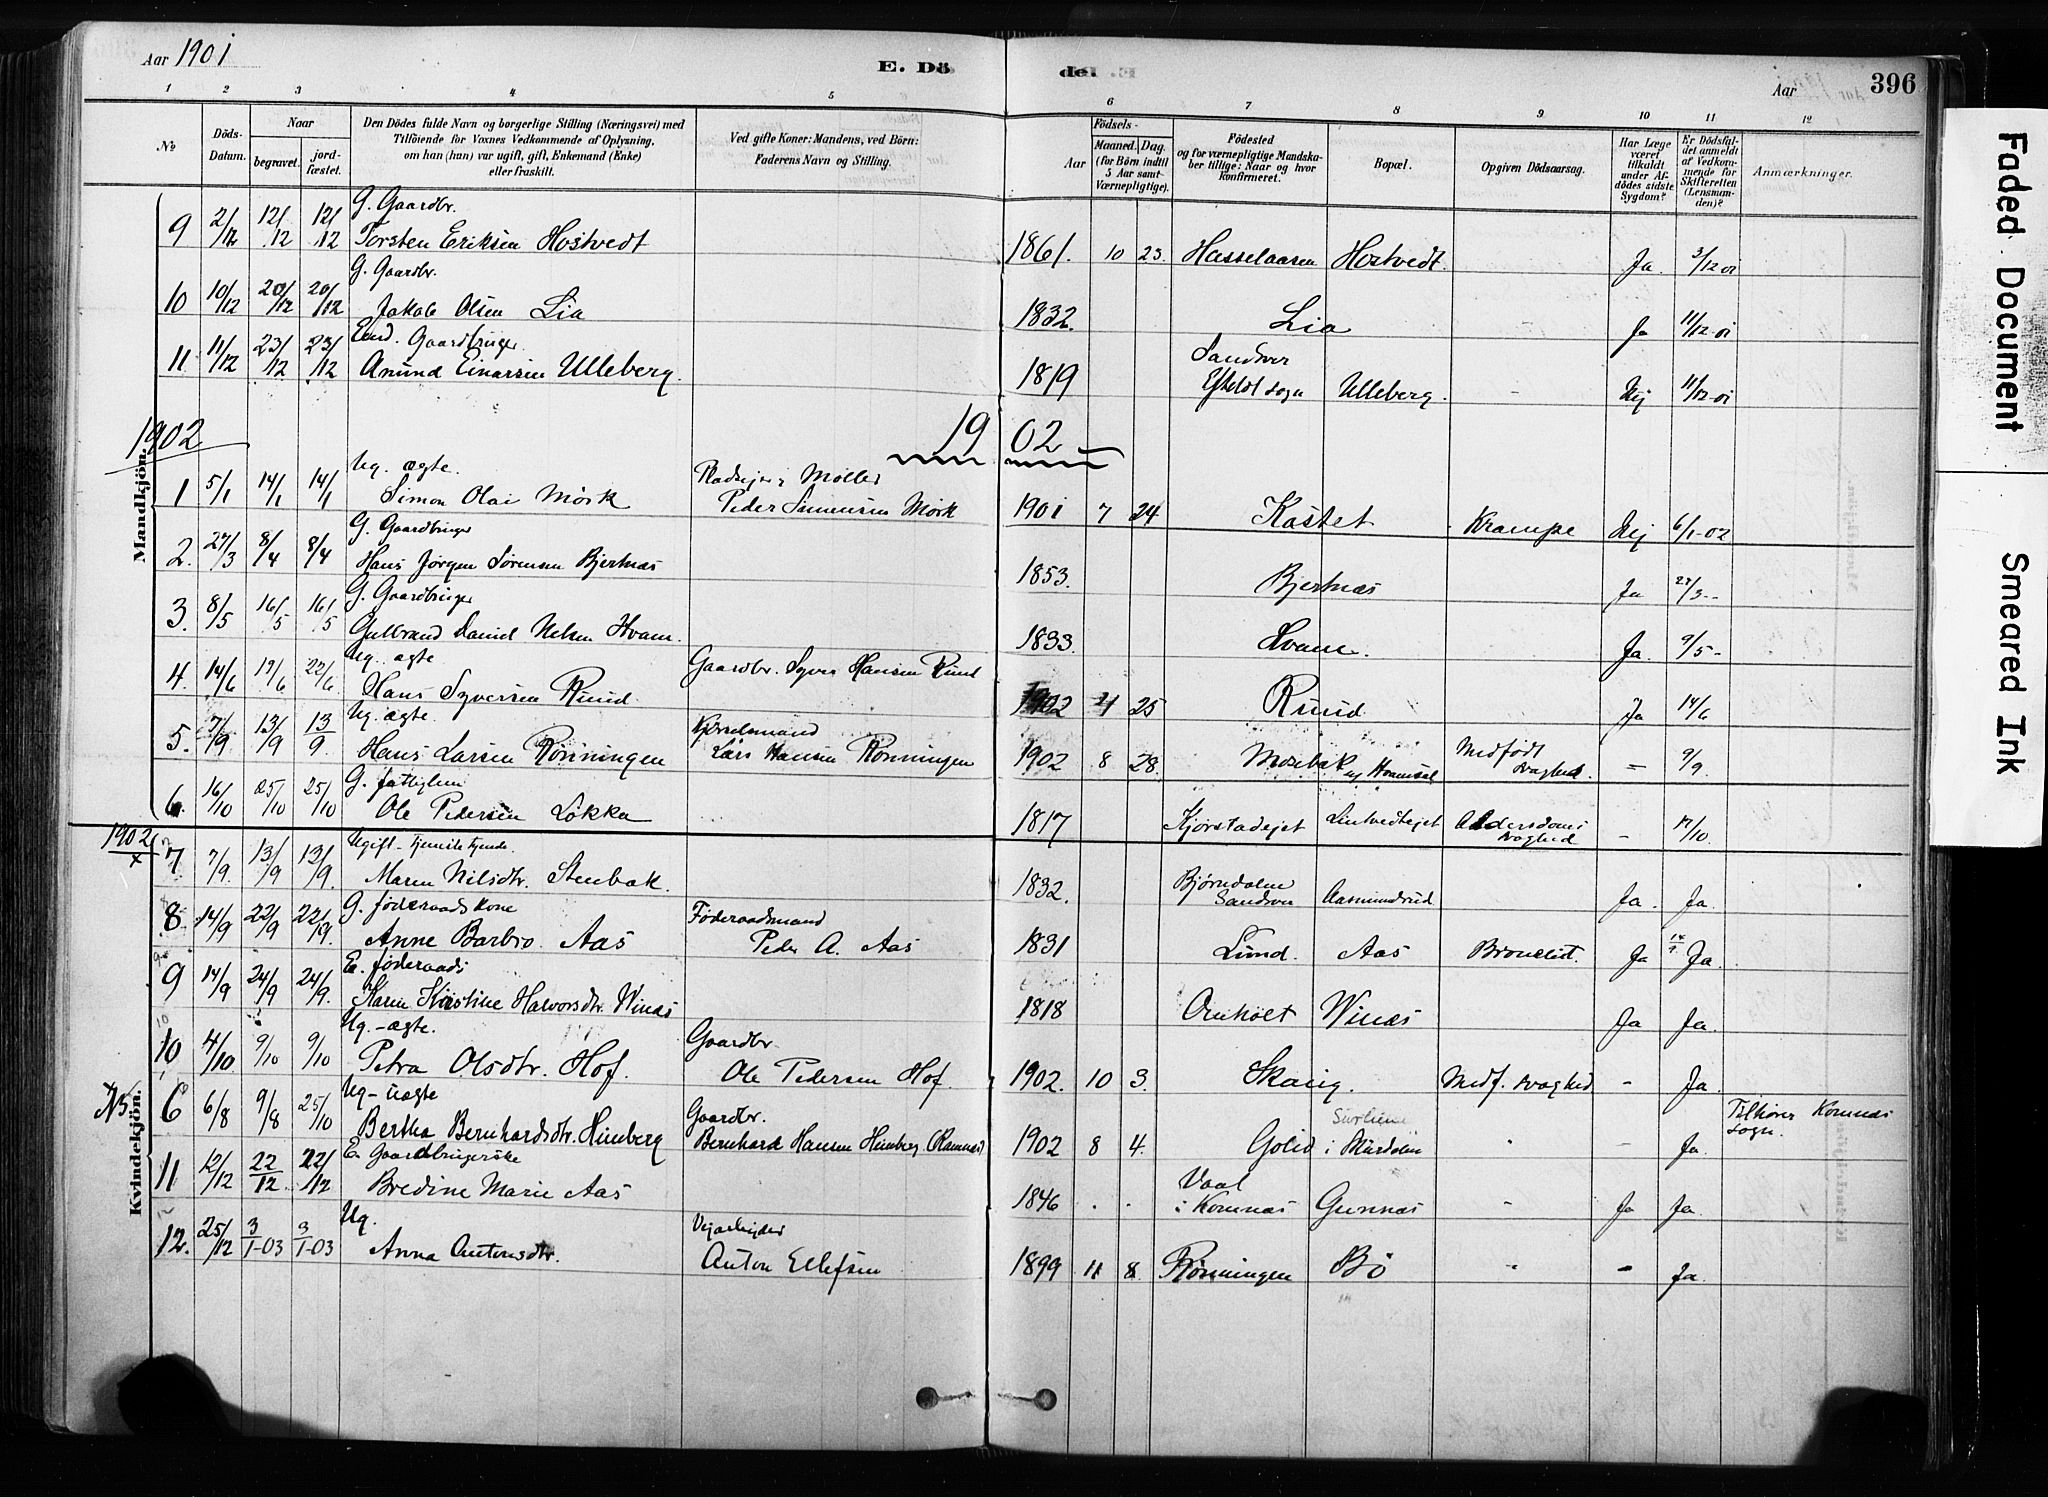 Aar 1901
E. Dö
de
Aar
396
1 2 3 4 5 6 7 8 9 10 11 12
No
Döds-Datum.
Naar
begravet.
jordfæstet.
Den Dödes fulde Navn og borgerlige Stilling (Næringsvei) med
Tilföiende for Voxnes Vedkommende af Oplysning,
om han (hun) var ugift, gift, Enkemand (Enke)
eller fraskilt.
Ved gifte Koner: Mandens, ved Börn:
Faderens Navn og Stilling.
Födsels-
Aar
Maaned. Dag.
(for Börn indtil
5 Aar samt
Værnepligtige).
Födested
og for værnepligtige Mandskaber tillige: Naar og hvor konfirmeret.
Bopæl.
Opgiven Dödsaarsag.
Har Læge været tilkaldt under Afdödes sidste Sygdom?
Er Dödsfaldet anmeldt af Vedkommende for Skifteretten (Lensmanden)?
Anmærkninger.
G. Gaardbr.
9 2/12 12/12 12/12 Torsten Eriksen Hostvedt 1861. 10 23. Hasselaasen Hostvedt. Ja. 3/12 01
G. Gaardbr.
10 10/12 20/12 20/12 Jakob Olsen Lia 1832. Lia - Ja 11/12-01
Gaardbruger
11 11/12 23/12 23/12 Anund Einarsen Ulleberg. 1819 Sandsver
sogn Ulleberg. - Nej 11/12-01
1902
19 02
Mandkjön.
Ug. ægte. Pladsejer, Møller
1 5/1 14/1 14/1 Simon Olai Mørk Peder Simensen Mørk 1901 7 24 Kastet Krampe Nej 6/1-02
G. Gaardbruger
2. 27/3 8/4 8/4 Hans Jørgen Sørensen Bjertnæs 1853. Bjertnæs Ja 27/3--
G. Gaardbruger
3. 8/5 16/5 16/5 Gulbrand Daniel Nelsen Hvam. 1833. Hvam. Ja. 9/5-
Ug. ægte Gaardbr. Syver Hansen Ruud
4. 14/6 22/6 Hans Syversen Ruud. 1902 4 25 Ruud Ja 14/6
Ug. ægte. Kjørselsmand
5. 7/9 13/9 13/9 Hans Larsen Rønningen Lars Hansen Rønningen 1902 8 28. Medfødt
Svaghed. = 9/9.
G. fattiglem
6. 16/10 25/10 25/10 Ole Pedersen Løkka 1817 Kjørstadejet Lintvedtejet Alderdoms
svaghed - 17/10.
1902
Ugift - Tjenestetjende.
7 7/9. 13/9 13/9. Maren Nilsdtr. Stenbak. 1832. Bjørndalen
Sandsver Aasmundrud Ja. Ja.
G. føderaadskone Føderaadsmand
8. 14/9 22/9 22/9. Anne Barbro. Aas Peder A. Aas 1831 Lund. Aas Bronchit. Ja 14/9 Ja.
E. føderaads
9 14/9 24/9 24/9. Karen Kirstine Halvorsdtr. Winæs 1818 Omholt Winæs Ja Ja.
Ug. - ægte. Gaardbr
10 4/10 9/10 9/10 Petra Olsdtr. Hof. Ole Pedersen Hof. 1902. 10 3. Skaug. Medf. svaghed - Ja.
Kvindekjön.
Ug - uægte Gaardbr.
6 6/8 9/8 25/10 Bertha Bernhardsdtr. Himberg Bernhard Hansen Himberg (Komnæs) 1902 8 4. Golid - Ja. Tilhører Komnæs
sogn.
E. Gaardbrugerske
11 12/12 22/12 22/12 Bredine Marie Aas 1846 . . i Komnæs Gunnæs Ja Ja.
Ug. Vejarbejder
12. 25/12 3/1-03 3/1-03 Anna Antonsdtr. Anton Ellefsen 1899 11 8. Rønningen Bø - Ja.
Faded Document
Smeared Ink